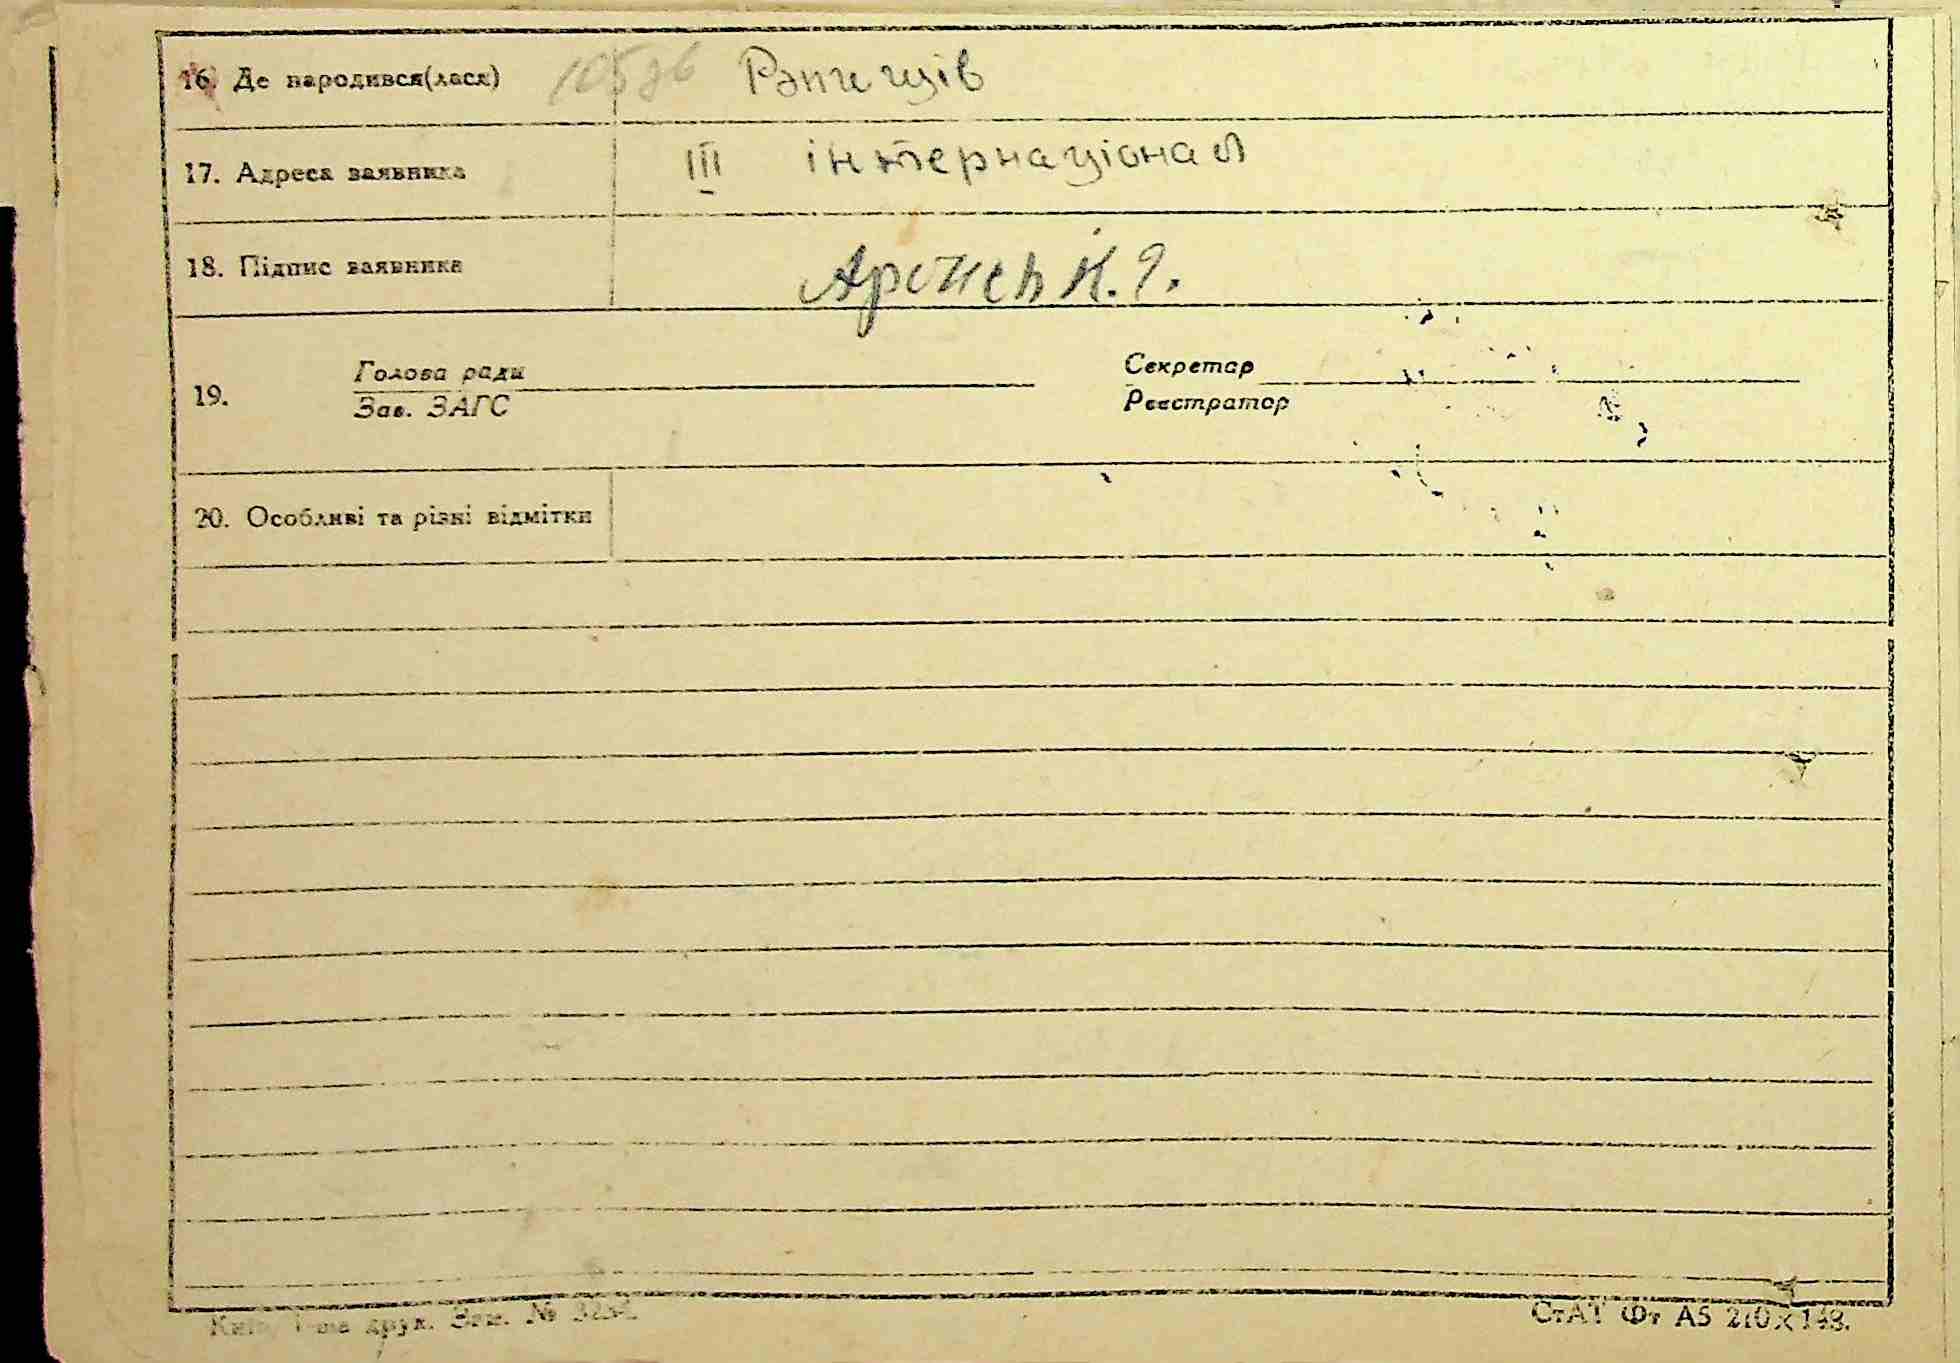 16. Де народився(лася) Рэпищів
17. Адреса заявника III інтернаціонал
18. Підпис заявника К. Я.
19. Голова ради Секретар
Зав. ЗАГС Реєстратор
20. Особливі та різні відмітки
друк. Зам. №
СтАТ Фт А5 210×148.